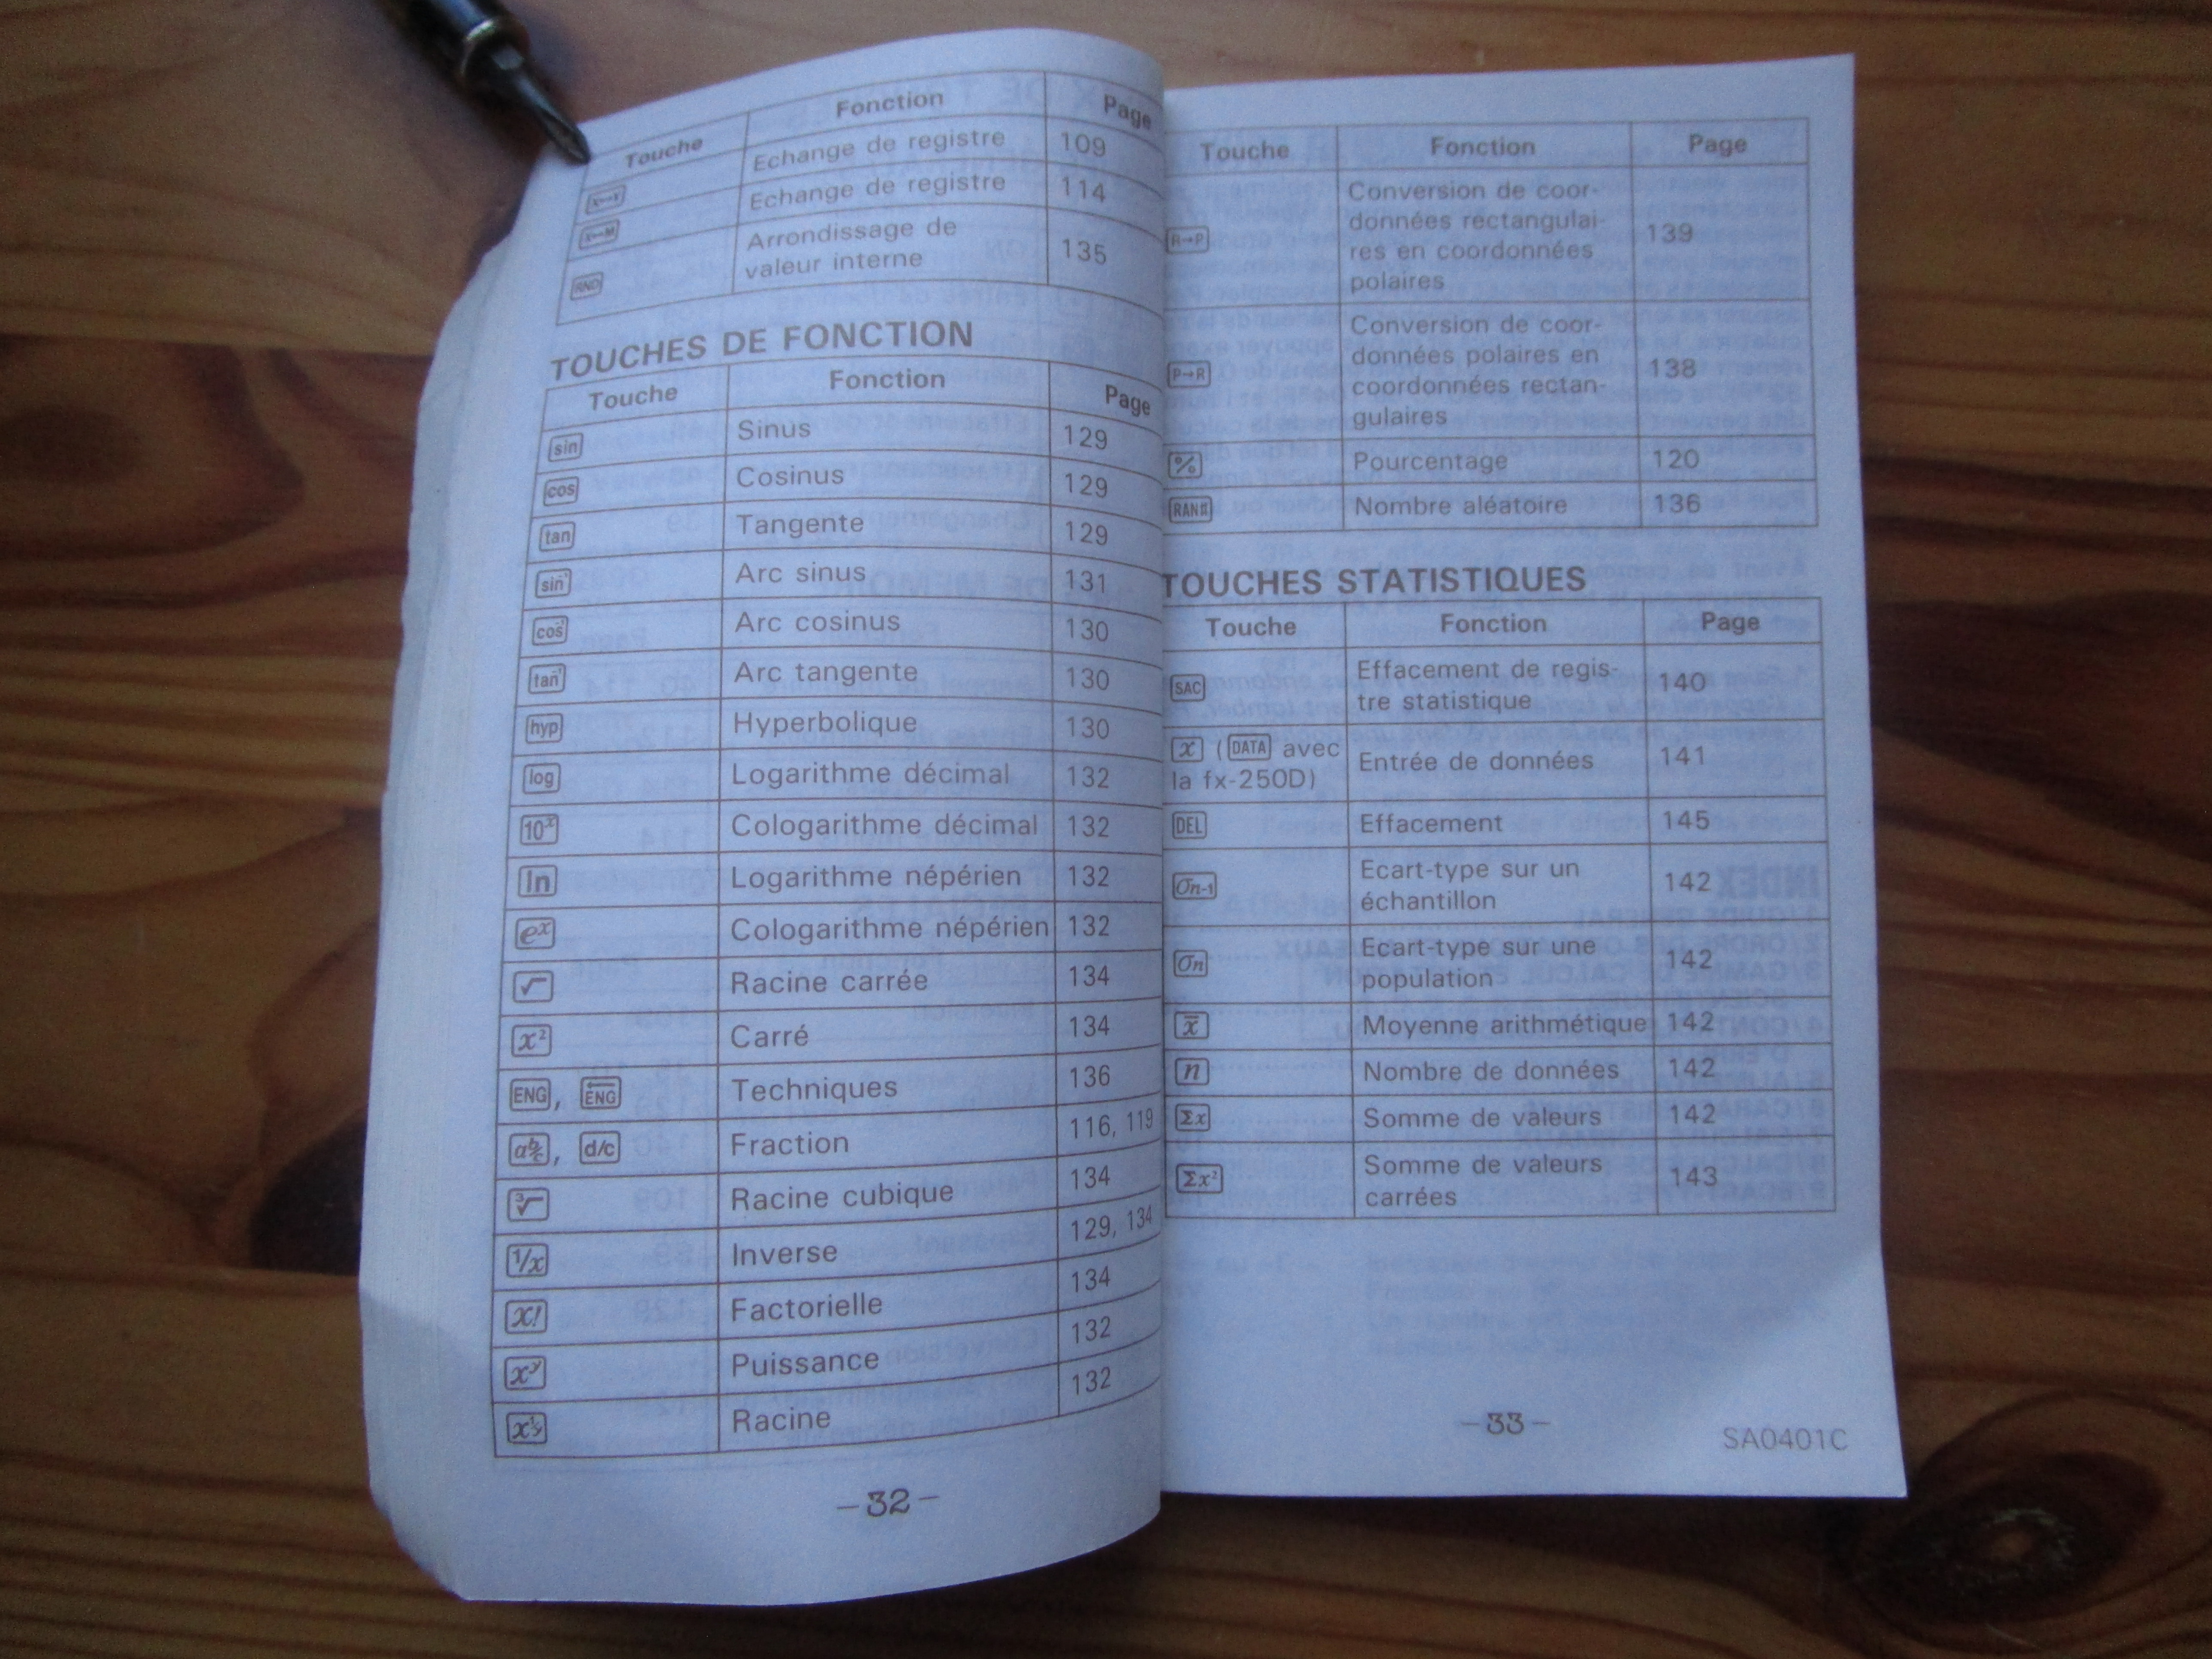 Touche Fonction Page
X↔Y Echange de registre 109
X↔M Echange de registre 114
RND Arrondissage de 135
valeur interne
TOUCHES DE FONCTION
Touche Fonction Page
sin Sinus 129
cos Cosinus 129
tan Tangente 129
sin⁻¹ Arc sinus 131
cos⁻¹ Arc cosinus 130
tan⁻¹ Arc tangente 130
hyp Hyperbolique 130
log Logarithme décimal 132
10ˣ Cologarithme décimal 132
ln Logarithme népérien 132
eˣ Cologarithme népérien 132
√ Racine carrée 134
x² Carré 134
ENG, ←ENG Techniques 136
a b/c, d/c Fraction 116, 119
³√ Racine cubique 134
1/x Inverse 129, 134
x! Factorielle 134
xʸ Puissance 132
x^1/y Racine 132
—32—
Touche Fonction Page
Conversion de coor-
données rectangulai-
R→P res en coordonnées 139
polaires
Conversion de coor-
données polaires en
P→R coordonnées rectan- 138
gulaires
% Pourcentage 120
RAN# Nombre aléatoire 136
TOUCHES STATISTIQUES
Touche Fonction Page
SAC Effacement de regis- 140
tre statistique
x (DATA avec Entrée de données 141
la fx-250D)
DEL Effacement 145
σn-1 Ecart-type sur un 142
échantillon
σn Ecart-type sur une 142
population
x̄ Moyenne arithmétique 142
n Nombre de données 142
Σx Somme de valeurs 142
Σx² Somme de valeurs 143
carrées
—33—
SA0401C